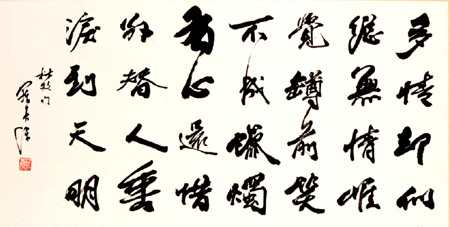 多情却似
總無情唯
覺罇前笑
不成蠟燭
有心還惜
別替人垂
淚到天明
杜牧